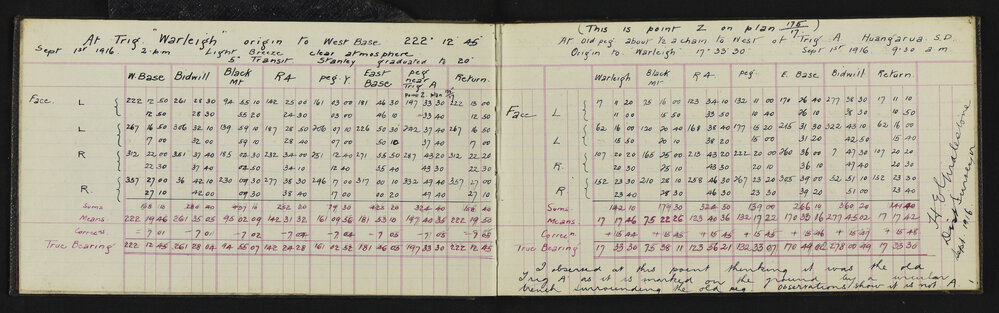 At Trig "Warleigh" origin to West Base 222° 12' 45"
Sept 1st 1916. 2. pm Light Breeze clear atmosphere.
5" Transit. Stanley graduated to 20"
W. Base Bidwill Black Mt R4 peg. Y East Base peg near Trig A Point Z. plan Return.
Face. L 222 12 50 261 28 30 94 55 10 142 25 00 161 03 00 181 46 30 197 33 30 222 13 00
12 50 28 30 55 20 24 30 03 00 46 10 33 40 12 50
L 267 16 50 306 32 10 139 59 10 187 28 50 206 07 10 226 50 30 242 37 40 267 16 50
7 00 32 00 59 10 28 40 07 00 50 10 37 40 7 00
R 312 22 00 351 37 40 185 03 30 232 34 00 251 12 40 271 55 50 287 43 20 312 22 20
22 30 37 40 34 10 12 40 35 40 43 30 22 30
R. 357 27 00 36 42 10 230 09 30 277 38 30 296 17 00 317 00 10 332 47 40 357 27 00
27 10 42 00 09 30 38 40 17 00 10 20 47 40 27 10
Sums
Means 222 19 46 261 35 05 95 02 09 142 31 32 161 09 56 181 53 10 197 40 35 222 19 50
Correcns - 7 01 - 7 01 - 7 02 - 7 04 - 7 04 - 7 05 - 7 05 - 7 05
True Bearing 222 12 45 261 28 04 94 55 07 142 24 28 161 02 52 181 46 05 197 33 30 222 12 45
(This is point Z on plan 175/17)
At Old peg about 1/2 a chain to West of Trig A Huangarua. S.D.
Origin to Warleigh 17° 33' 30" Sept 1st 1916 9.30 a m
Warleigh Black Mt R4. peg. E. Base Bidwill Return.
Face L 7 11 20 75 16 00 123 34 10 132 11 00 170 26 40 277 38 30 17 11 10
11 00 15 50 33 50 10 40 26 10 38 30 10 50
L. 62 16 00 120 20 40 168 38 40 177 15 20 215 31 30 322 43 10 62 16 00
15 50 20 10 38 20 15 00 31 20 42 50 15 40
R. 107 20 20 165 25 00 213 43 20 222 20 00 260 36 00 7 47 30 107 20 30
20 30 25 10 43 30 20 10 36 10 47 40 20 30
R 152 23 30 210 28 10 258 46 30 267 23 20 305 39 00 52 51 10 152 23 30
23 40 28 30 46 30 23 30 39 20 51 00 23 40
Sums
Means. 17 17 46 75 22 26 123 40 36 132 17 22 170 33 16 277 45 02 17 17 42
Correcn + 15 44 + 15 45 + 15 45 + 15 45 + 15 46 + 15 47 + 15 48
True Bearing 17 33 30 75 38 11 123 56 21 132 33 07 170 49 02 278 00 49 17 33 30
I observed at this point thinking it was the old
Trig A as it is marked on the ground by a circular
trench surrounding the old peg. Observations show it is not A.
Dist Surveyor
Sept. 1916